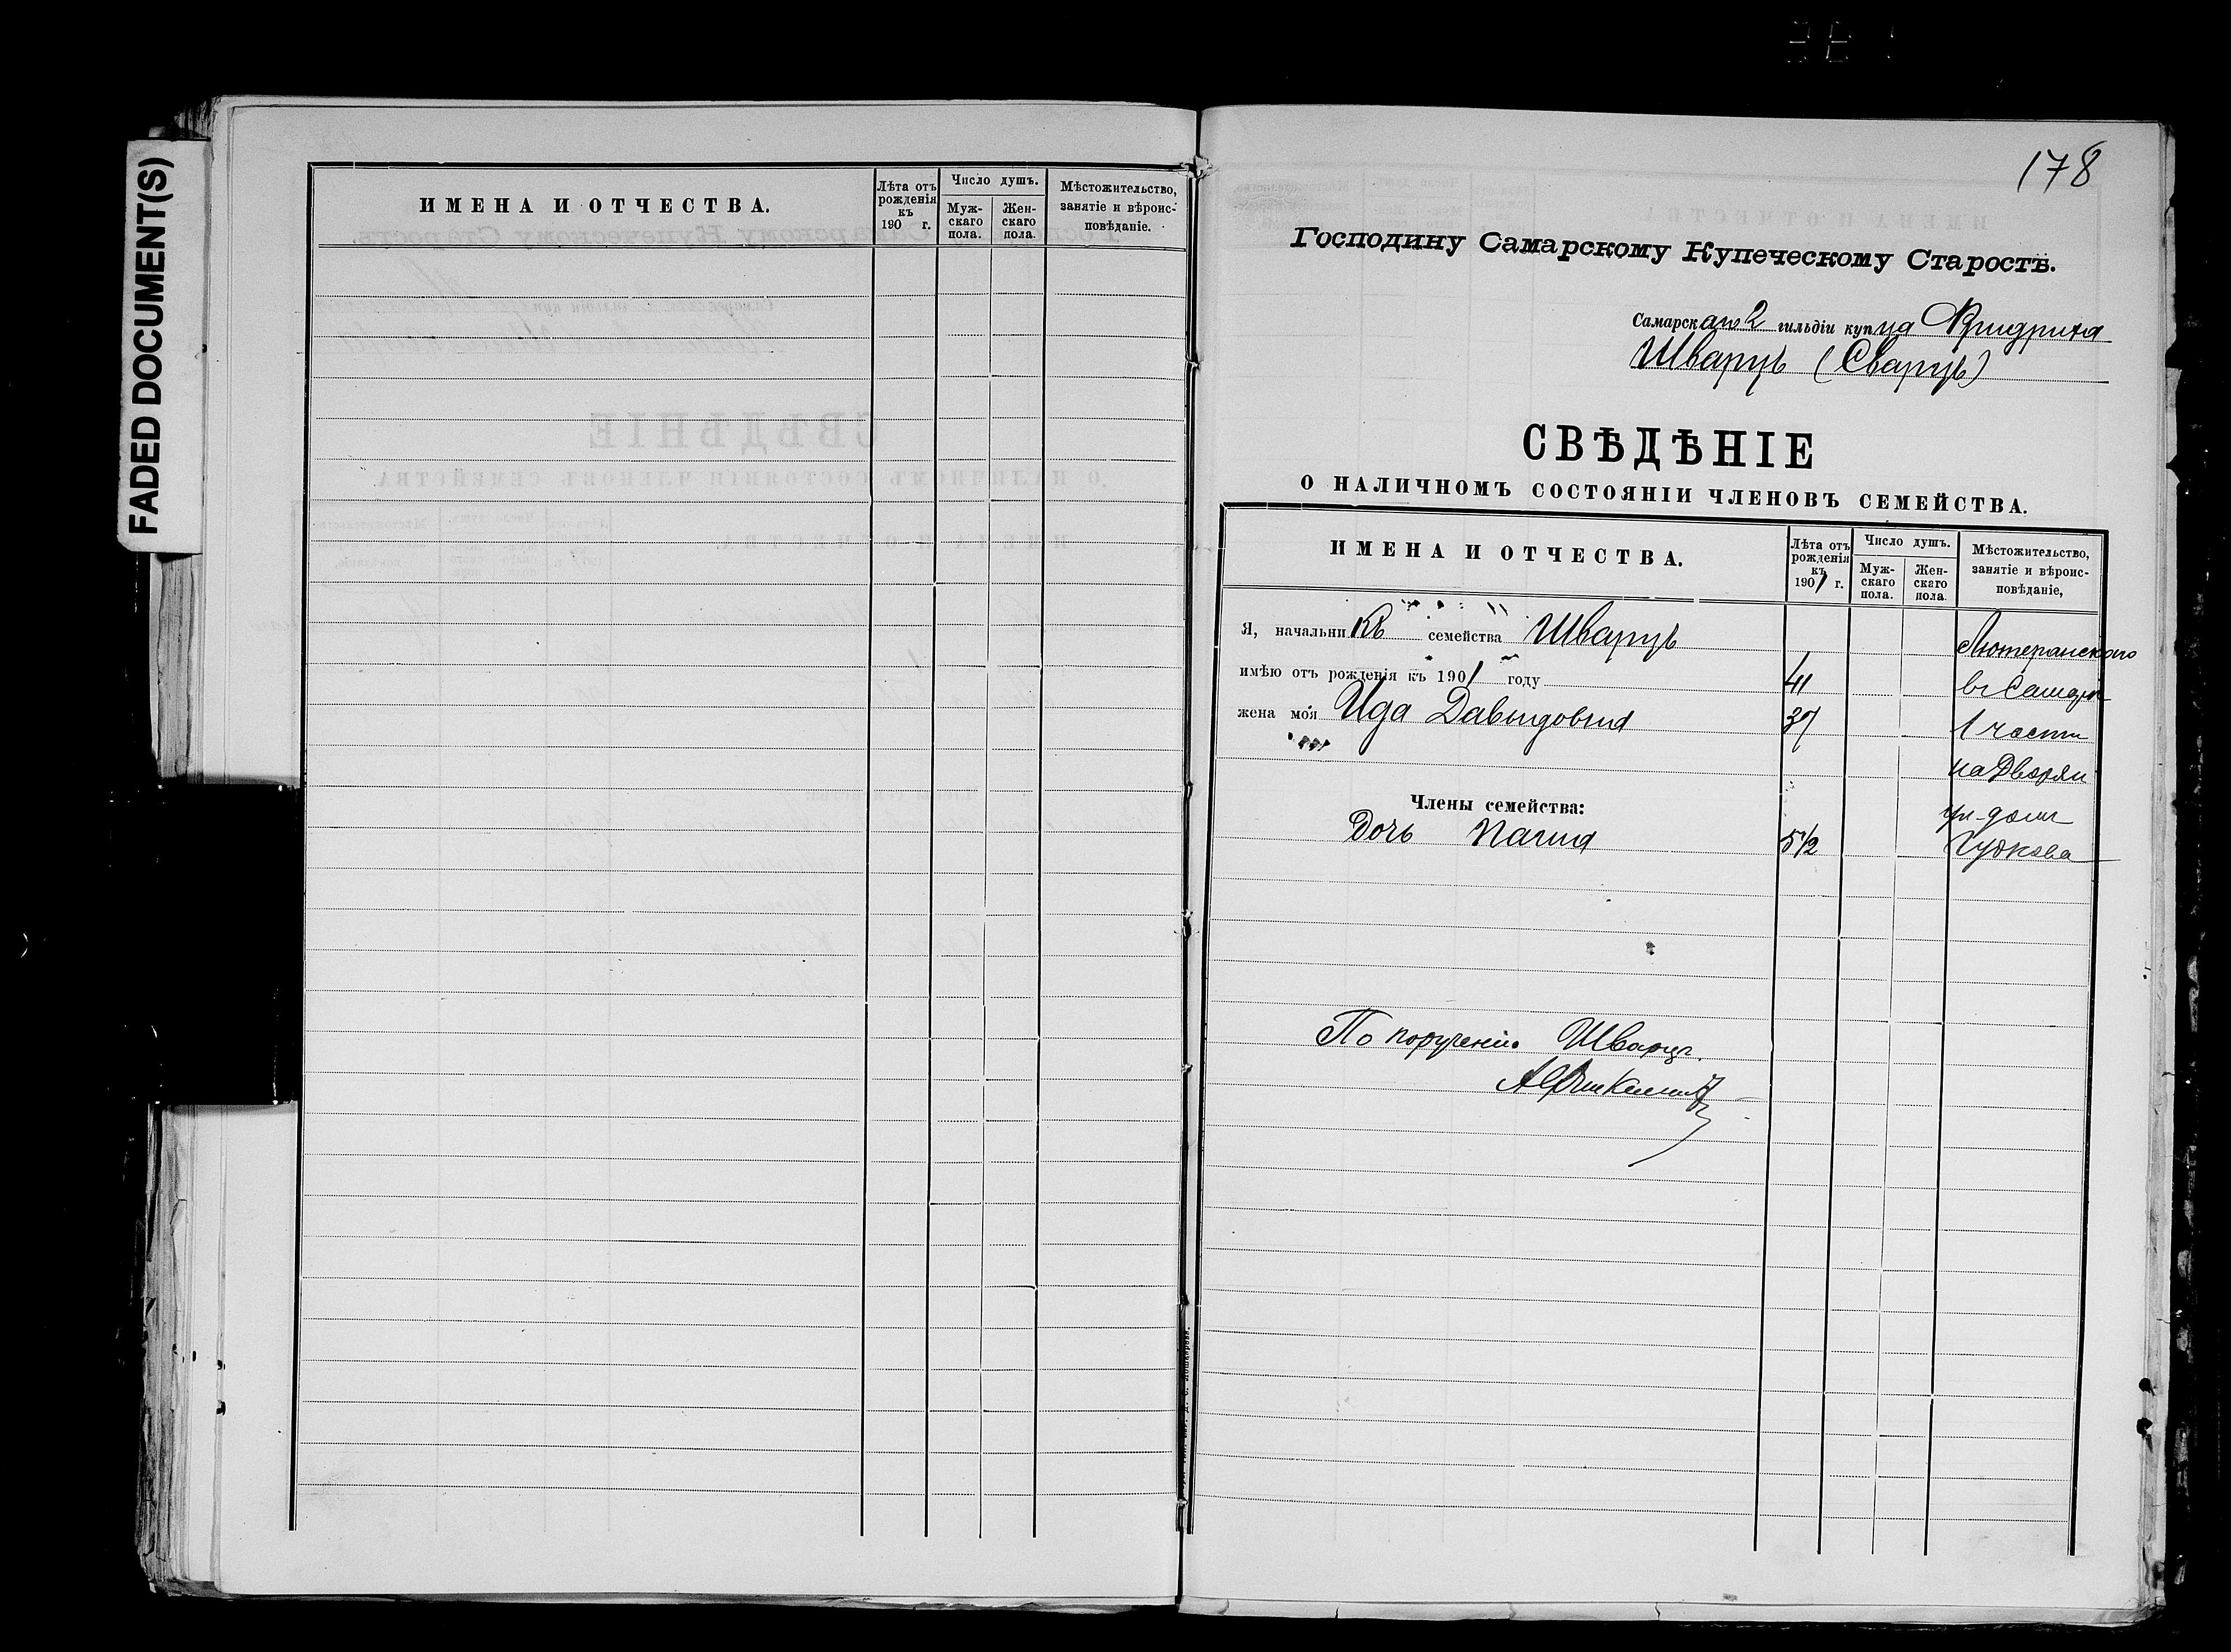 FADED DOCUMENT(S)
ИМЕНА И ОТЧЕСТВА.
Лѣта отъ рожденія къ 190 г.
Число душъ.
Муж-скаго пола.
Жен-скаго пола.
Мѣстожительство, занятіе и вѣроис-повѣданіе.
178
Господину Самарскому Купеческому Старостѣ.
Самарскаго 2 гильдіи купца Фридриха
Шварцъ (Сварцъ)
СВѢДѢНІЕ
О НАЛИЧНОМЪ СОСТОЯНІИ ЧЛЕНОВЪ СЕМЕЙСТВА.
ИМЕНА И ОТЧЕСТВА.
Лѣта отъ рожденія къ 1901 г.
Число душъ.
Муж-скаго пола.
Жен-скаго пола.
Мѣстожительство, занятіе и вѣроис-повѣданіе,
Я, начальникъ семейства Шварцъ
Лютеранскаго
имѣю отъ рожденія къ 1901 году 41
въ Самарѣ
жена моя Ида Давыдовна
1 части
на Дворян
Члены семейства:
ул. домъ
Дочь 5 1/2
По порученію Шварцъ.